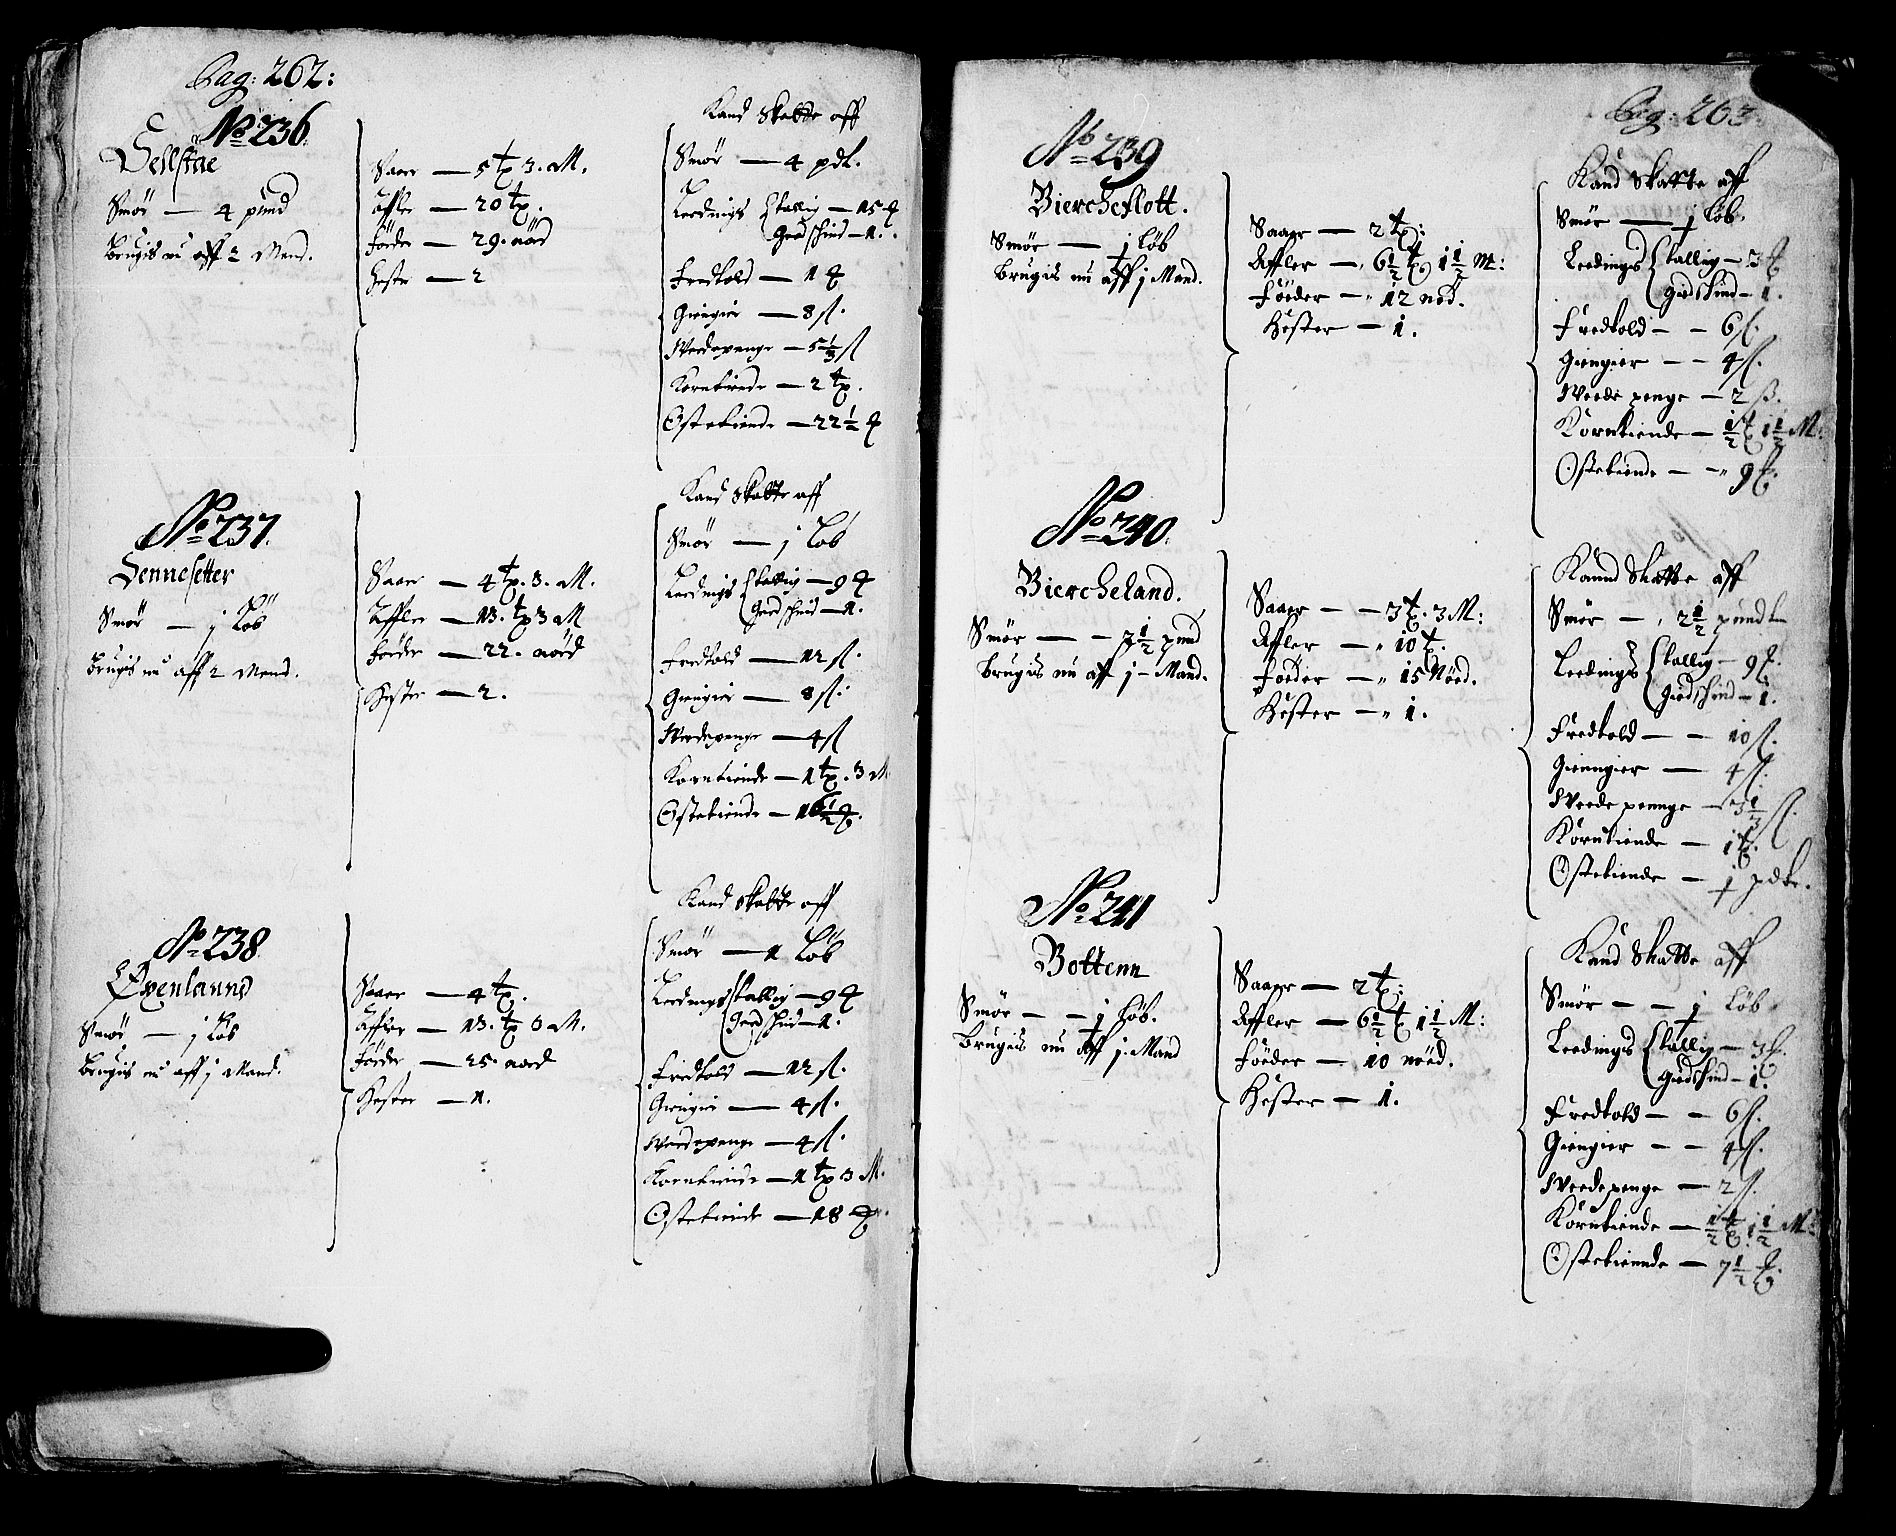 Pag: 262:
No 236
Sellstae
Smør — 4 pund
Brugis nu aff 2 Mand.
Saaer — 5 tp 3. M.
Affler — 20 tp.
Føder — 29. nød
Heste — 2
Kand Skatte aff
Smør — 4 pdt.
Leedings {Kallig — 15 ꝉ
Giedschind — 1.
Fredtold — 1 ꝉ
Giengier — 8 sl.
Wordepenge — 5 1/3 sl
Korntiende — 2 tp.
Ostetiende — 22 1/2 ꝉ
No 237.
Sennesetter
Smør — j Løb
Brugis nu aff 2 Mend.
Saaer — 4 tp. 3. M.
Affler — 13. tp 3 M
Føder — 22. nød
Hester — 2.
Kand Skatte aff
Smør — j Løb
Leedings {Kallig — 9 ꝉ
Giedschind — 1.
Fredtold — 12 sl.
Giengier — 8 sl.
Wordepenge — 4 sl
Korntiende — 1 tp. 3 M
Ostetiende — 16 1/2 ꝉ.
No 238.
Øxenlaund
Smør — j Løb
Brugis nu aff j Mand.
Saaer — 4 tp.
Affler — 13. tp 0 M.
Føder — 25. nød
Hester — 1.
Kand Skatte aff
Smør — 1 Løb
Leedings {Kallig — 9 ꝉ
Giedschind — 1.
Fredtold — 12 sl.
Giengier — 4 sl.
Wordepenge — 4 sl.
Korntiende — 1 tp 3 M.
Ostetiende — 18 ꝉ.
Pag: 263.
No 239
Biercheflott.
Smør — j Løb
Brugis nu aff j Mand.
Saaer — 2 tp:
Affler — 6 1/2 tp 1 1/2 M:
Føeder — 12 nød.
Hester — 1.
Kand Skatte aff
Smør — j Løb.
Leedings {Kallig — 3 ꝉ
Giedschind — 1.
Fredtold — 6 sl.
Giengier — 4 sl.
Weede penge — 2 ß.
Korntiende — 1/2 tp 1 1/2 M:
Ostetiende — 9 ꝉ.
No 240.
Biercheland.
Smør — 2 1/2 pund
Brugis nu aff j — Mand.
Saaer — 3 tp. 3 M:
Affler — 10 tp.
Føeder — 15 Nød.
Hester — 1.
Kannd Skatte aff
Smør — 2 1/2 pundt
Leedings {Kallig — 9 ꝉ.
Giedschind — 1.
Fredtold — 10 sl.
Gienngier — 4 sl.
Weede pennge — 3 1/3 sl.
Kornntiende — 1 tp.
Ostetiende — j pdt.
No 241
Bottenn
Smør — j Løb.
Brugis nu aff j. Mand
Saaer — 2 tp:
Affler — 6 1/2 tp 1 1/2 M:
Føeder — 10 nød.
Hester — 1.
Kand Skatte aff
Smør — j Løb
Leedings {Kallig — 3 ꝉ.
Giedschind — 1.
Fredtold — 6 sl.
Giengier — 4 sl.
Weedepenge — 2 sl.
Korntiende — 1/2 tp. 1 1/2 M:
Ostetiennde — 7 1/2 ꝉ.